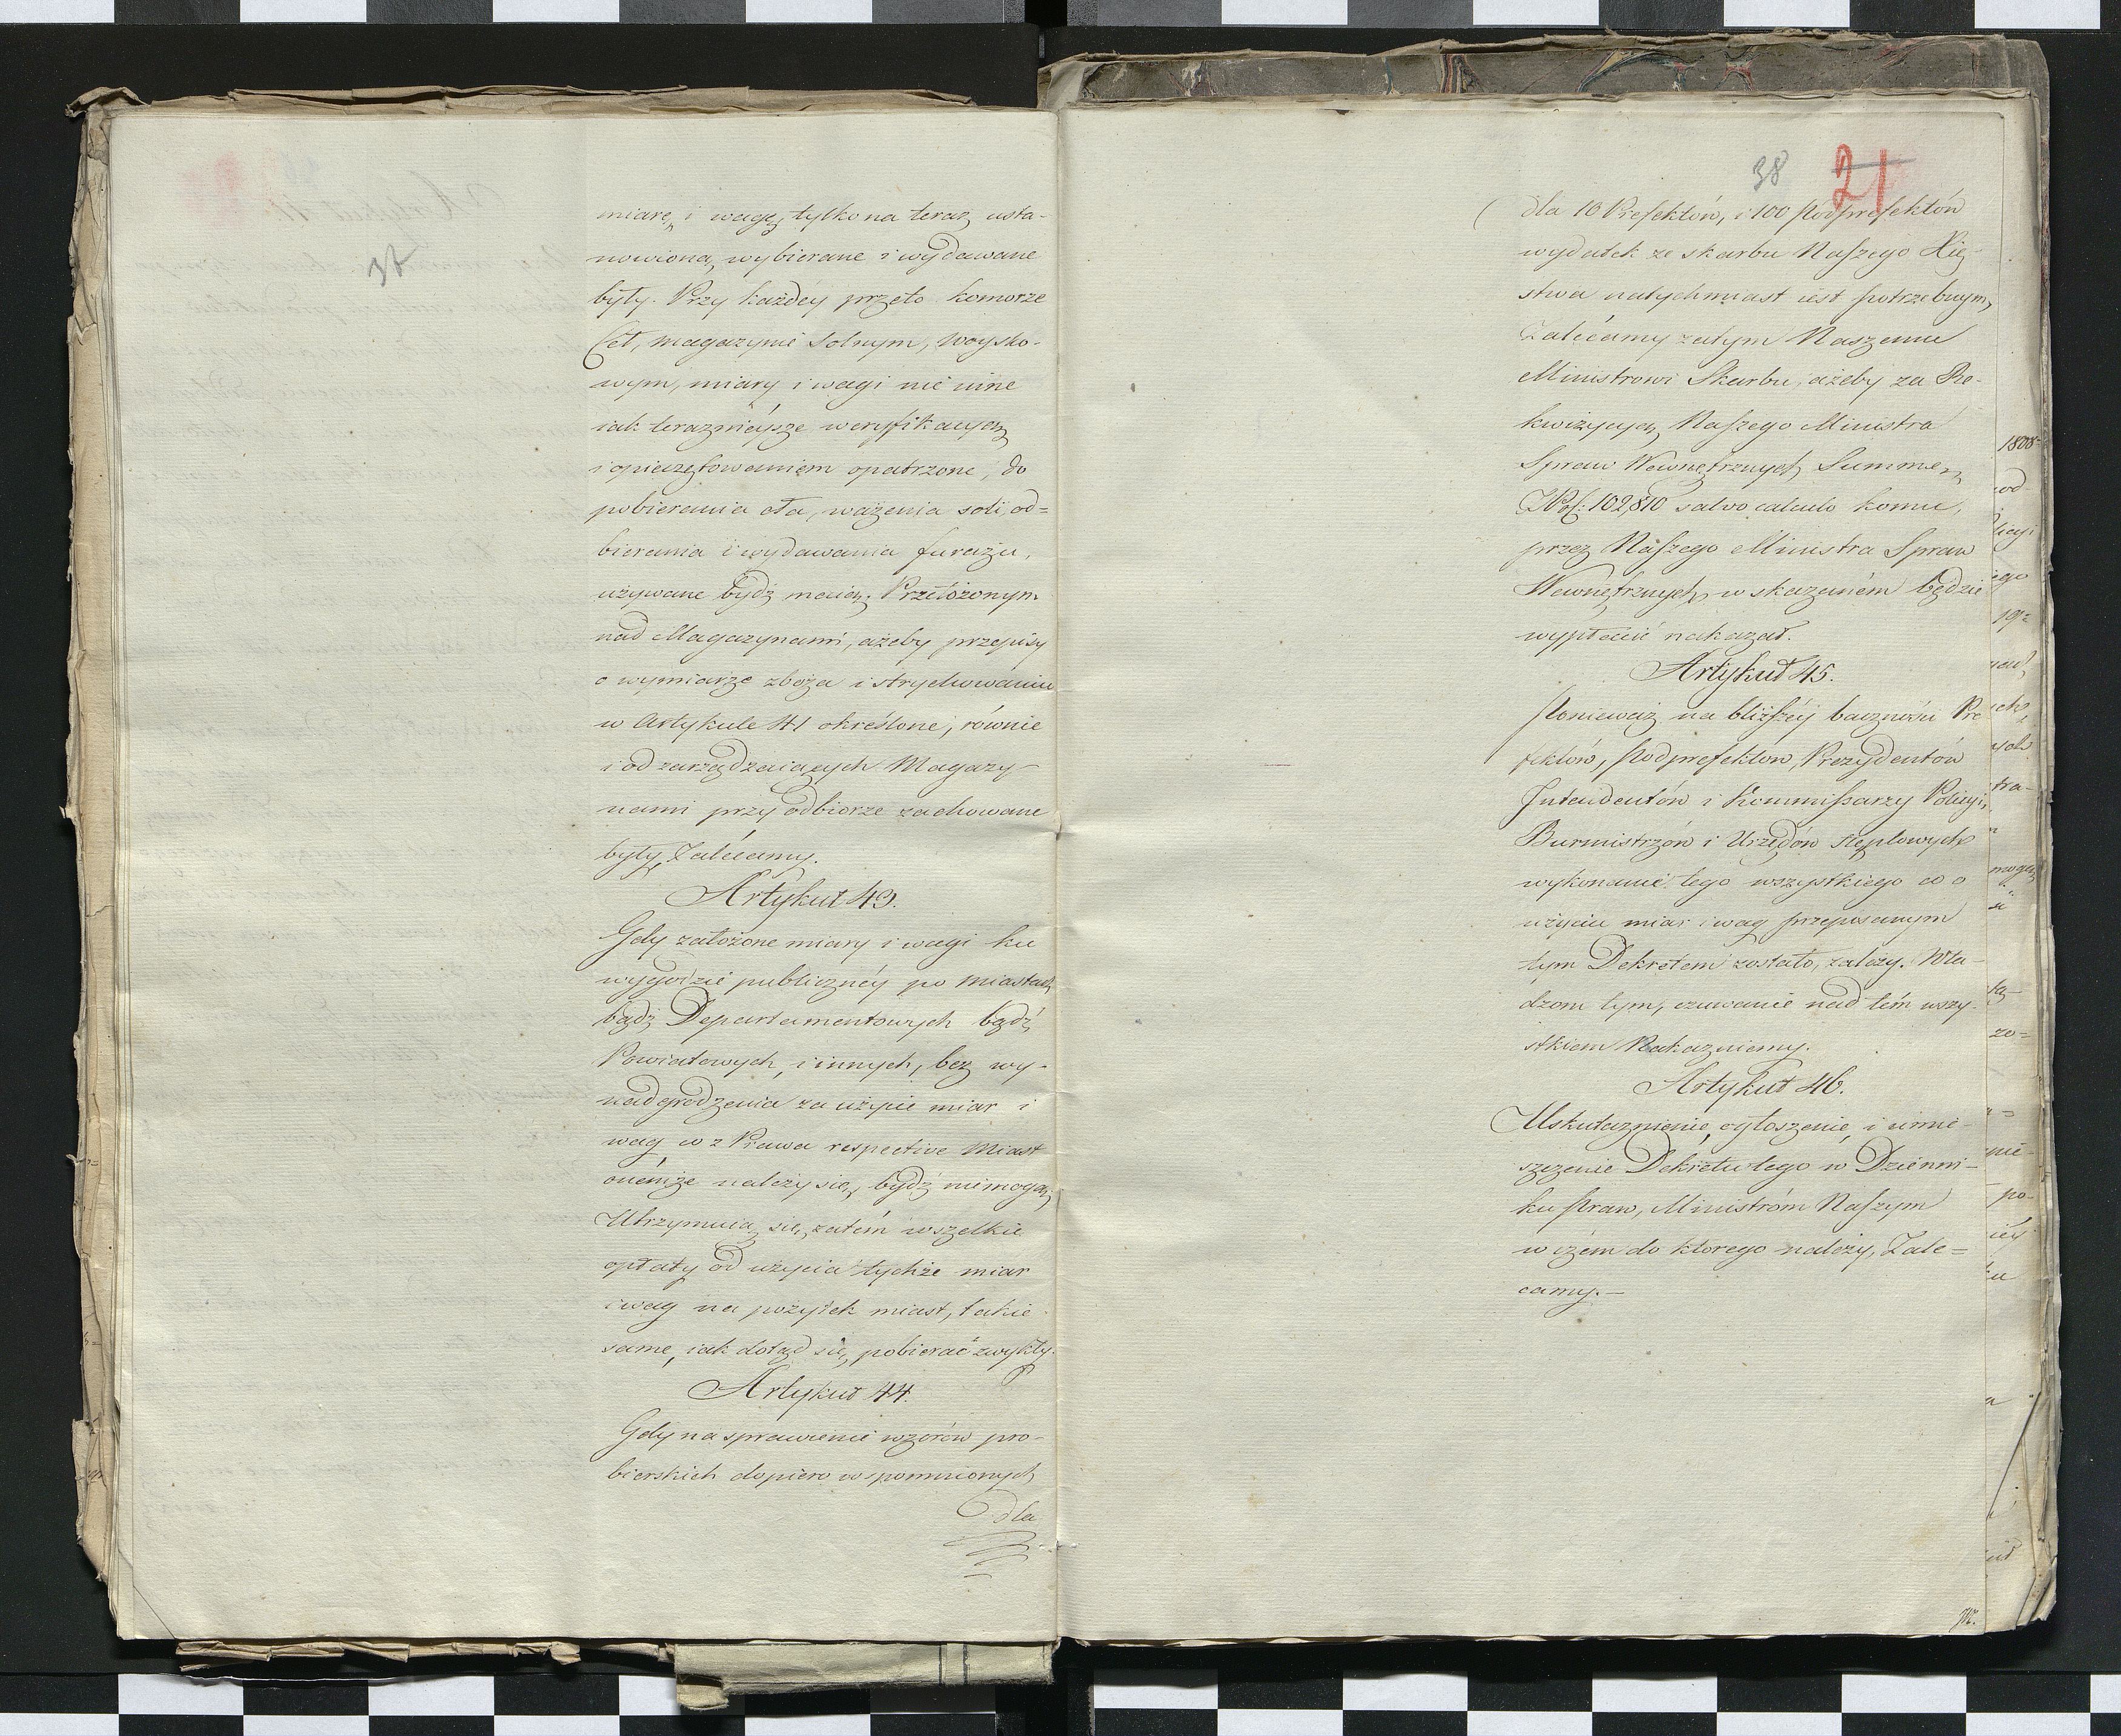 37
miarę i wagę tylko na teraz usta-
nowioną, wybierane i wydawane
były. Przy każdéy przeto komorze
Ceł, magazynie solnym, woysko-
wym, miary i wagi nie inne
iak teraznieysze weryfikacyą
i opieczętowaniem opatrzone, do
pobierania cła, ważenia soli, od=
bierania i wydawania furażu,
używane bydź maią. Przełożonym
nad Magazynami, ażeby przepisy
o wymiarze zboża i strychowaniu
w Artykule 41 określone, równie
i od zarządzaiących Magazy-
nami przy odbiorze zachowane
były, Zalecamy.
Artykuł 43.
Gdy założone miary i wagi ku
wygodzie publicznéy po miastach
bądź Departamentowych bądź
Powiatowych, i innych, bez wy-
nadgrodzenia za użycie miar i
wag co z Prawa respective Miast
onémże należy się, bydź niemogą,
Utrzymuią się, zatém wszelkie
opłaty od użycia tychże miar
i wag na pożytek miast, takie
same, iak dotąd się, pobierać zwykły.
Artykuł 44.
Gdy na sprawienie wzorów pro-
bierskich dopiero wspomnionych
dla
38 21
dla 10 Prefektów, i 100 Podprefektów
wydatek ze skarbu Naszego Xię-
stwa natychmiast iest potrzebnym,
Zalécamy zatym Naszemu
Ministrowi Skarbu, ażeby za Re-
kwizycyą Naszego Ministra
Spraw Wewnętrznych Summę
102,810 salvo calculo komu,
przez Naszego Ministra Spraw
Wewnętrznych wskazaném będzie
wypłacić nakazał.
Artykuł 45.
Ponieważ na bliższéy baczności Pre
fektów, Podprefektow, Prezydentów
Intendentów i Kommissarzy Policyi,
Burmistrzów i Urzędów Stęplowych
wykonanie tego wszystkiego co o
użyciu miar i wag przepisanym
tym Dekretem zostało, zależy. Wła-
dzom tym, czuwanie nad tém wszy-
stkiem Nakazuiemy.
Artykuł 46.
Uskutecznienie, ogłoszenie, i umie-
szczenie Dekretu tego w Dzienni-
ku Praw, Ministróm Naszym
w czém do ktorego należy, Zale=
camy.—
1808